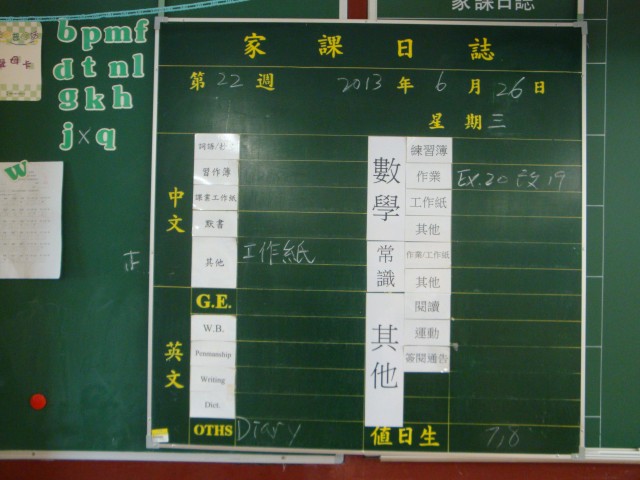 家課日誌
bpmf
dtnl
gkh
jxq
W
家課日誌
第22週 2013年6月26日
星期三
中文
習作簿
課業工作紙
默書
其他 工作紙
英文
G.E.
W.B.
Penmanship
Writing
Dict.
OTHS Diary
數學
練習簿
作業 Ex.20 P.19
工作紙
其他
常識
作業/工作紙
其他
其他
閱讀
運動
簽閱通告
值日生 7,8